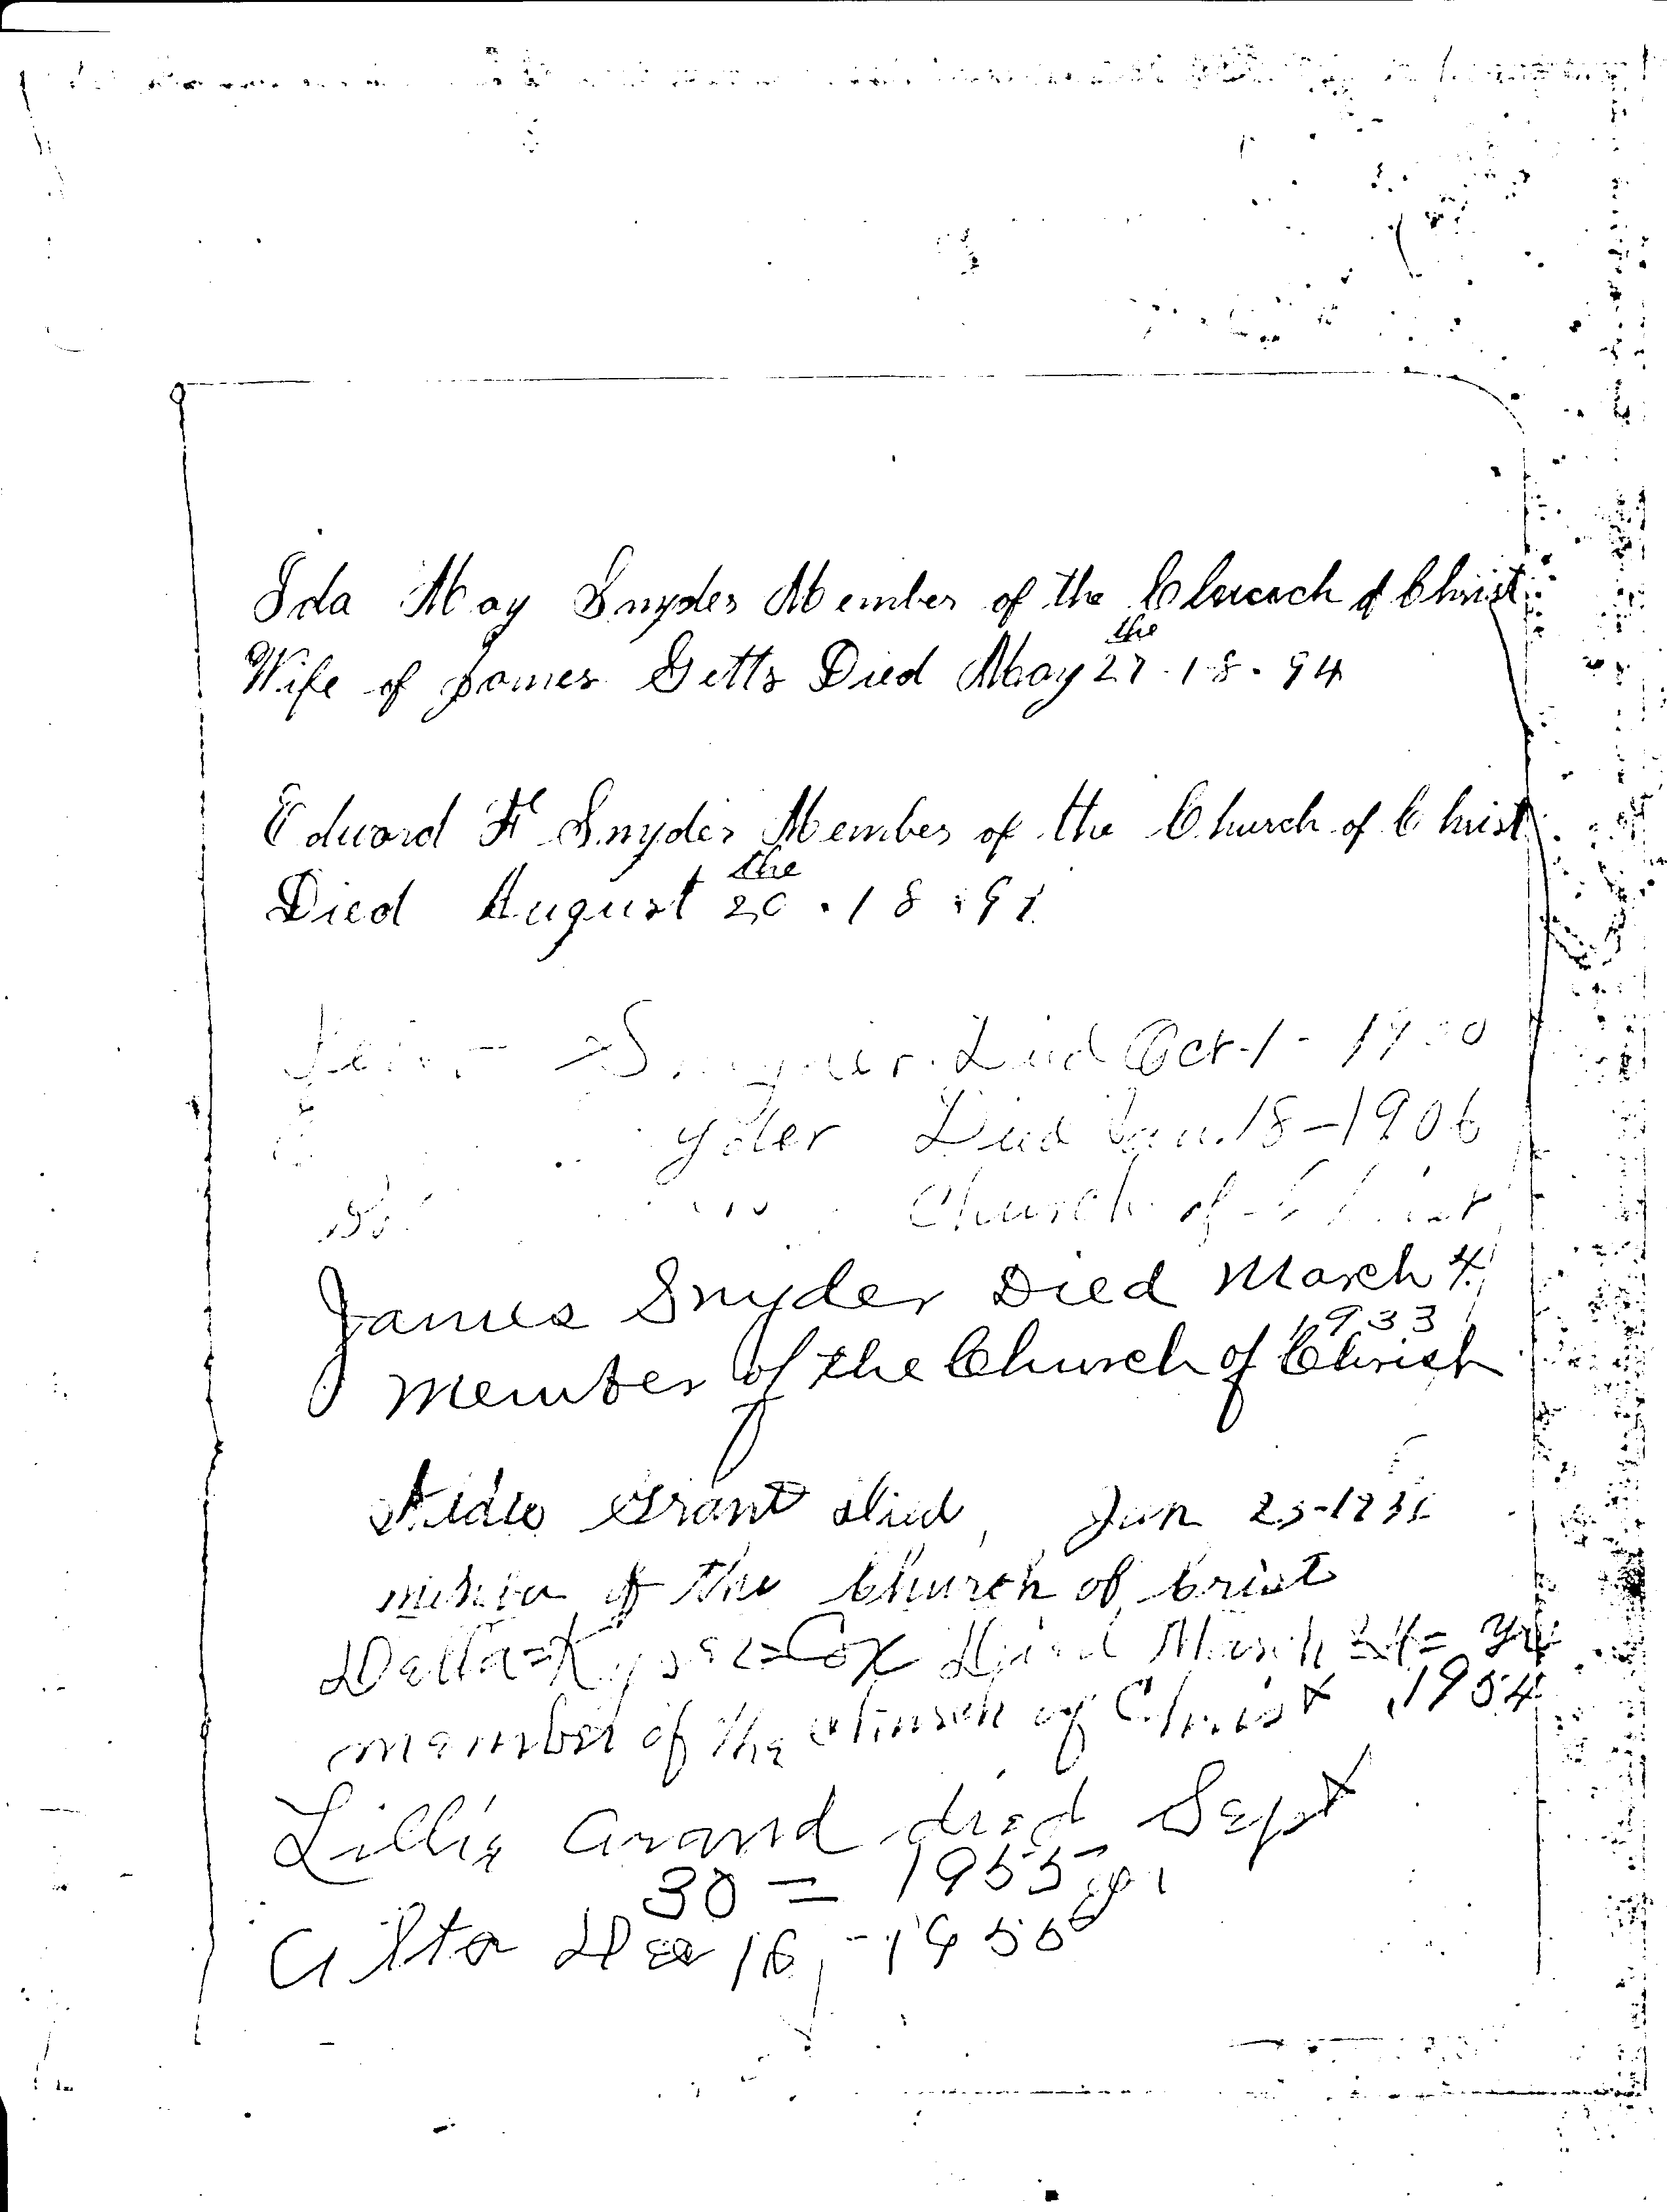 Ida May Snyder Member of the Church of Christ
the
Wife of James Getts Died May 27 . 18 . 94
Edward F Snyder Member of the Church of Christ
the
Died August 20 . 18 . 91
Snyder . Died Oct . 1 - 19
yder Died Jan . 18 - 1906
Church of Christ
James Snyder Died March 4
1933
Member of the Church of Christ
Grant died , Jan
of the Church of Crist
Della = = Cox Died March 24 = yr
member of the Church of Christ , 1954
Lillie died Sept
30 = 1955 yr
Dec 16 , - 1955